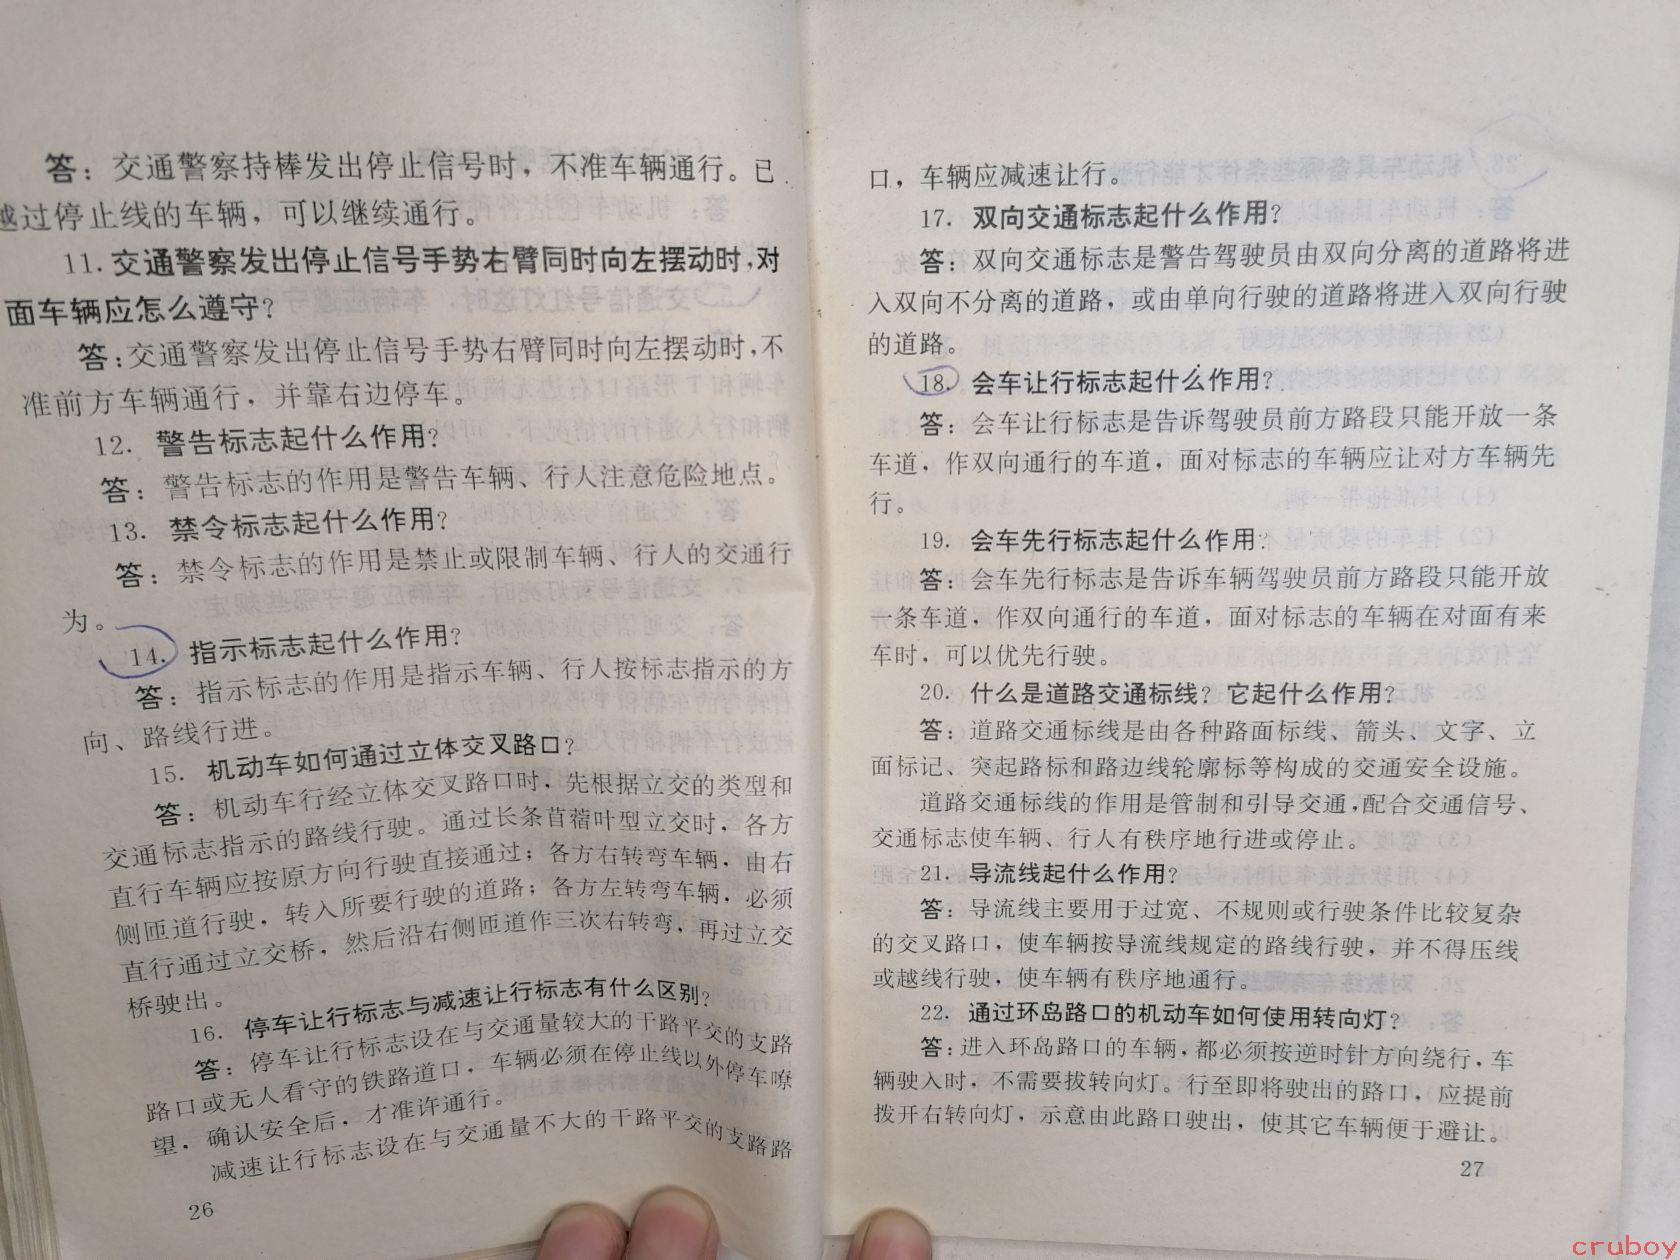 答：交通警察持棒发出停止信号时，不准车辆通行。已
越过停止线的车辆，可以继续通行。
11. 交通警察发出停止信号手势右臂同时向左摆动时，对
面车辆应怎么遵守？
答：交通警察发出停止信号手势右臂同时向左摆动时，不
准前方车辆通行，并靠右边停车。
12. 警告标志起什么作用？
答：警告标志的作用是警告车辆、行人注意危险地点。
13. 禁令标志起什么作用？
答：禁令标志的作用是禁止或限制车辆、行人的交通行
为。
14. 指示标志起什么作用？
答：指示标志的作用是指示车辆、行人按标志指示的方
向、路线行进。
15. 机动车如何通过立体交叉路口？
答：机动车行经立体交叉路口时，先根据立交的类型和
交通标志指示的路线行驶。通过长条苜蓿叶型立交时，各方
直行车辆应按原方向行驶直接通过；各方右转弯车辆，由右
侧匝道行驶，转入所要行驶的道路；各方左转弯车辆，必须
直行通过立交桥，然后沿右侧匝道作三次右转弯，再过立交
桥驶出。
16. 停车让行标志与减速让行标志有什么区别？
答：停车让行标志设在与交通量较大的干路平交的支路
路口或无人看守的铁路道口，车辆必须在停止线以外停车嘹
望，确认安全后，才准许通行。
减速让行标志设在与交通量不大的干路平交的支路路
26
口，车辆应减速让行。
17. 双向交通标志起什么作用？
答：双向交通标志是警告驾驶员由双向分离的道路将进
入双向不分离的道路，或由单向行驶的道路将进入双向行驶
的道路。
18. 会车让行标志起什么作用？
答：会车让行标志是告诉驾驶员前方路段只能开放一条
车道，作双向通行的车道，面对标志的车辆应让对方车辆先
行。
19. 会车先行标志起什么作用？
答：会车先行标志是告诉车辆驾驶员前方路段只能开放
一条车道，作双向通行的车道，面对标志的车辆在对面有来
车时，可以优先行驶。
20. 什么是道路交通标线？它起什么作用？
答：道路交通标线是由各种路面标线、箭头、文字、立
面标记、突起路标和路边线轮廓标等构成的交通安全设施。
道路交通标线的作用是管制和引导交通，配合交通信号、
交通标志使车辆、行人有秩序地行进或停止。
21. 导流线起什么作用？
答：导流线主要用于过宽、不规则或行驶条件比较复杂
的交叉路口，使车辆按导流线规定的路线行驶，并不得压线
或越线行驶，使车辆有秩序地通行。
22. 通过环岛路口的机动车如何使用转向灯？
答：进入环岛路口的车辆，都必须按逆时针方向绕行，车
辆驶入时，不需要拔转向灯。行至即将驶出的路口，应提前
拨开右转向灯，示意由此路口驶出，使其它车辆便于避让。
27
cruboy